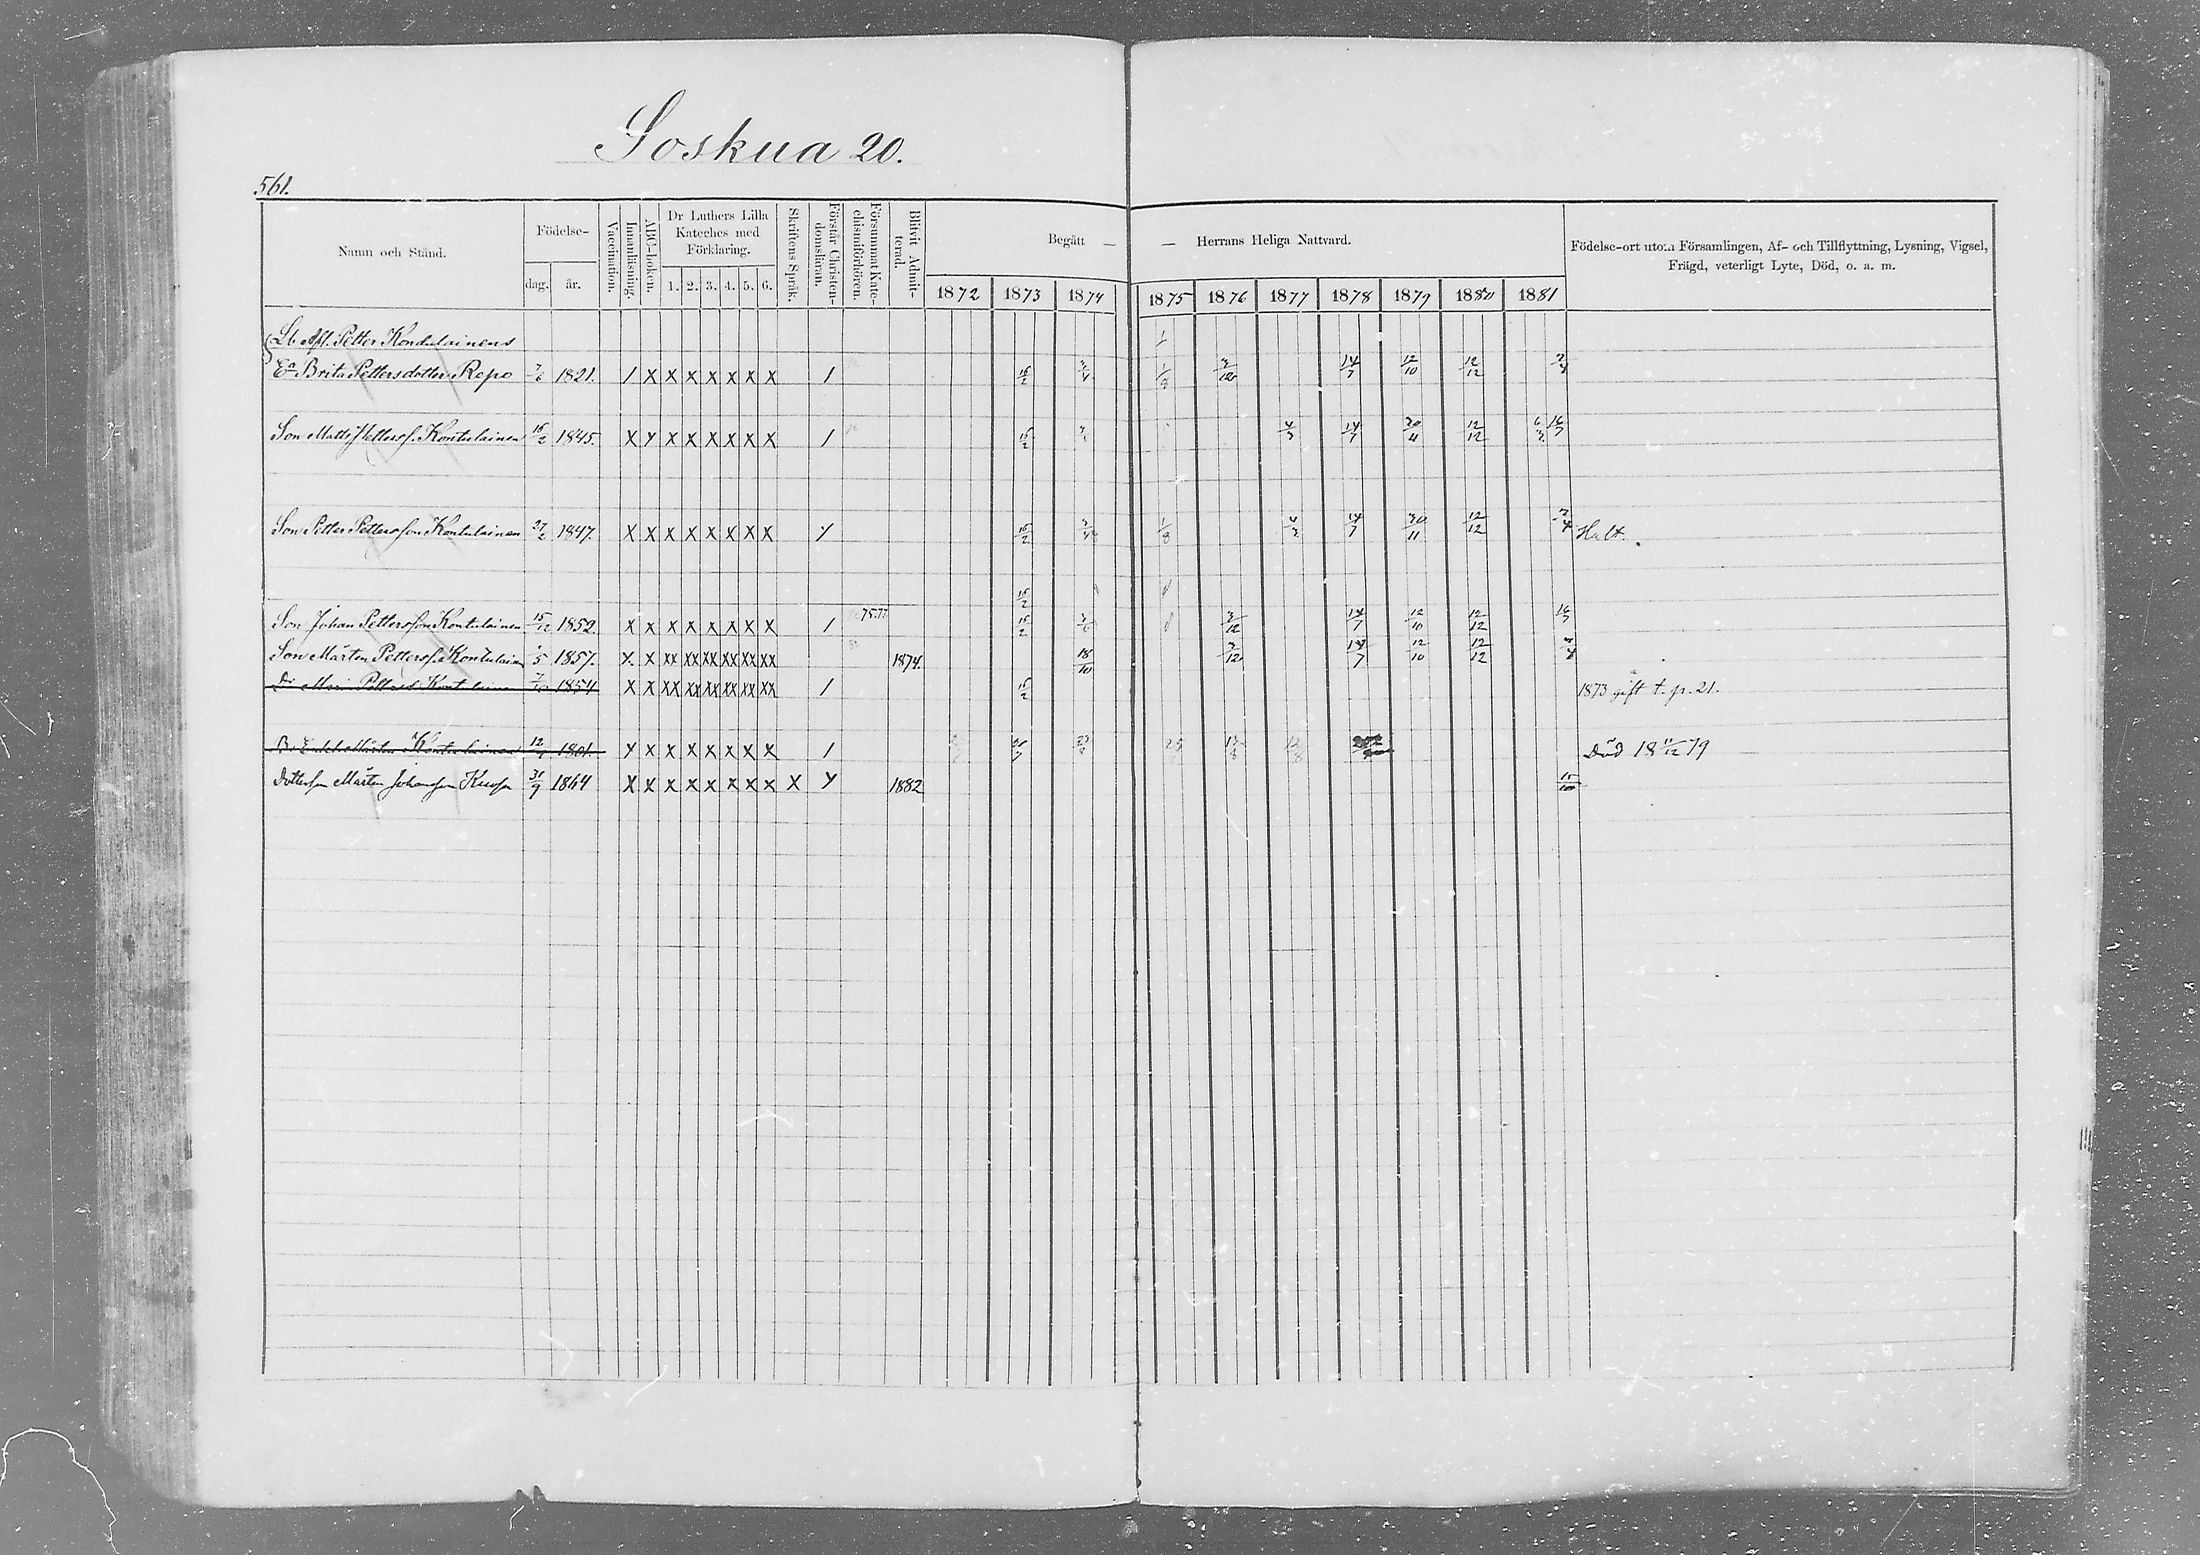 Soskua 20.
561.
Namn och Stånd.
Födelse-
dag.
år.
Vaccination.
Innanläsning.
ABC-boken.
Dr Luthers Lilla
Kateches med
Förklaring.
1. 2. 3. 4. 5. 6.
Skriftens Språk.
Förstår Christen-
domsläran.
Försummat Kate-
chismiförhören.
Blifvit Admit-
terad.
Begått — — Herrans Heliga Nattvard.
1872 1873 1874 1875 1876 1877 1878 1879 1880 1881
Födelse-ort utom Församlingen, Af- och Tillflyttning, Lysning, Vigsel,
Frägd, veterligt Lyte, Död, o. a. m.
Lb Afl. Petter Kondulainens
Ea Brita Pettersdotter Repo 7/6 1821. / X X X X X X X / 15/2 3/4 1/8 3/12 14/7 12/10 12/12 2/4
Son Matts Petterss. Kontulainen 15/2 1845. X Y X X X X X X / 15/2 4/3 14/7 30/11 12/12 6/3 16/7
Son Petter Pettersson Kontulainen 27/2 1847. X X X X X X X X Y 15/2 3/4 1/8 4/3 14/7 30/11 12/12 2/4 Halt.
15/2
Son Johan Pettersson Kontulainen 15/12 1852. X X X X X X X X / 75.77 15/2 3/12 14/7 12/10 12/12 16/7
Son Mårten Petterss. Kontulainen 5 1857. X X XX XX XX XX XX XX 1874. 18/10 3/12 14/7 12/10 12/12
Dr Maria Kontulainen 7/10 1854 X X XX XX XX XX XX XX / 15/2 1873 gift t. p. 21.
Mårten Kontulainen 12 1801. Y X X X X X X X / Död 18 11/12 79
Dotterson Mårten Johansson 31/9 1864 X X X X X X X X X Y 1882 15/10